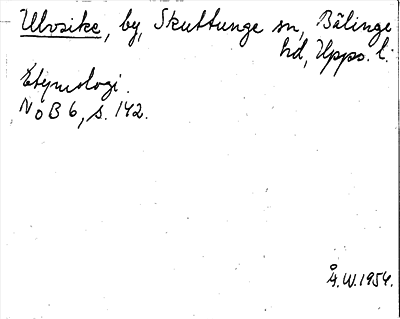 Ulvsike, by, Skuttunge sn, Bälinge
hd, Upps. l.
Etymologi.
NoB 6, s. 142.
Å.W. 1954.